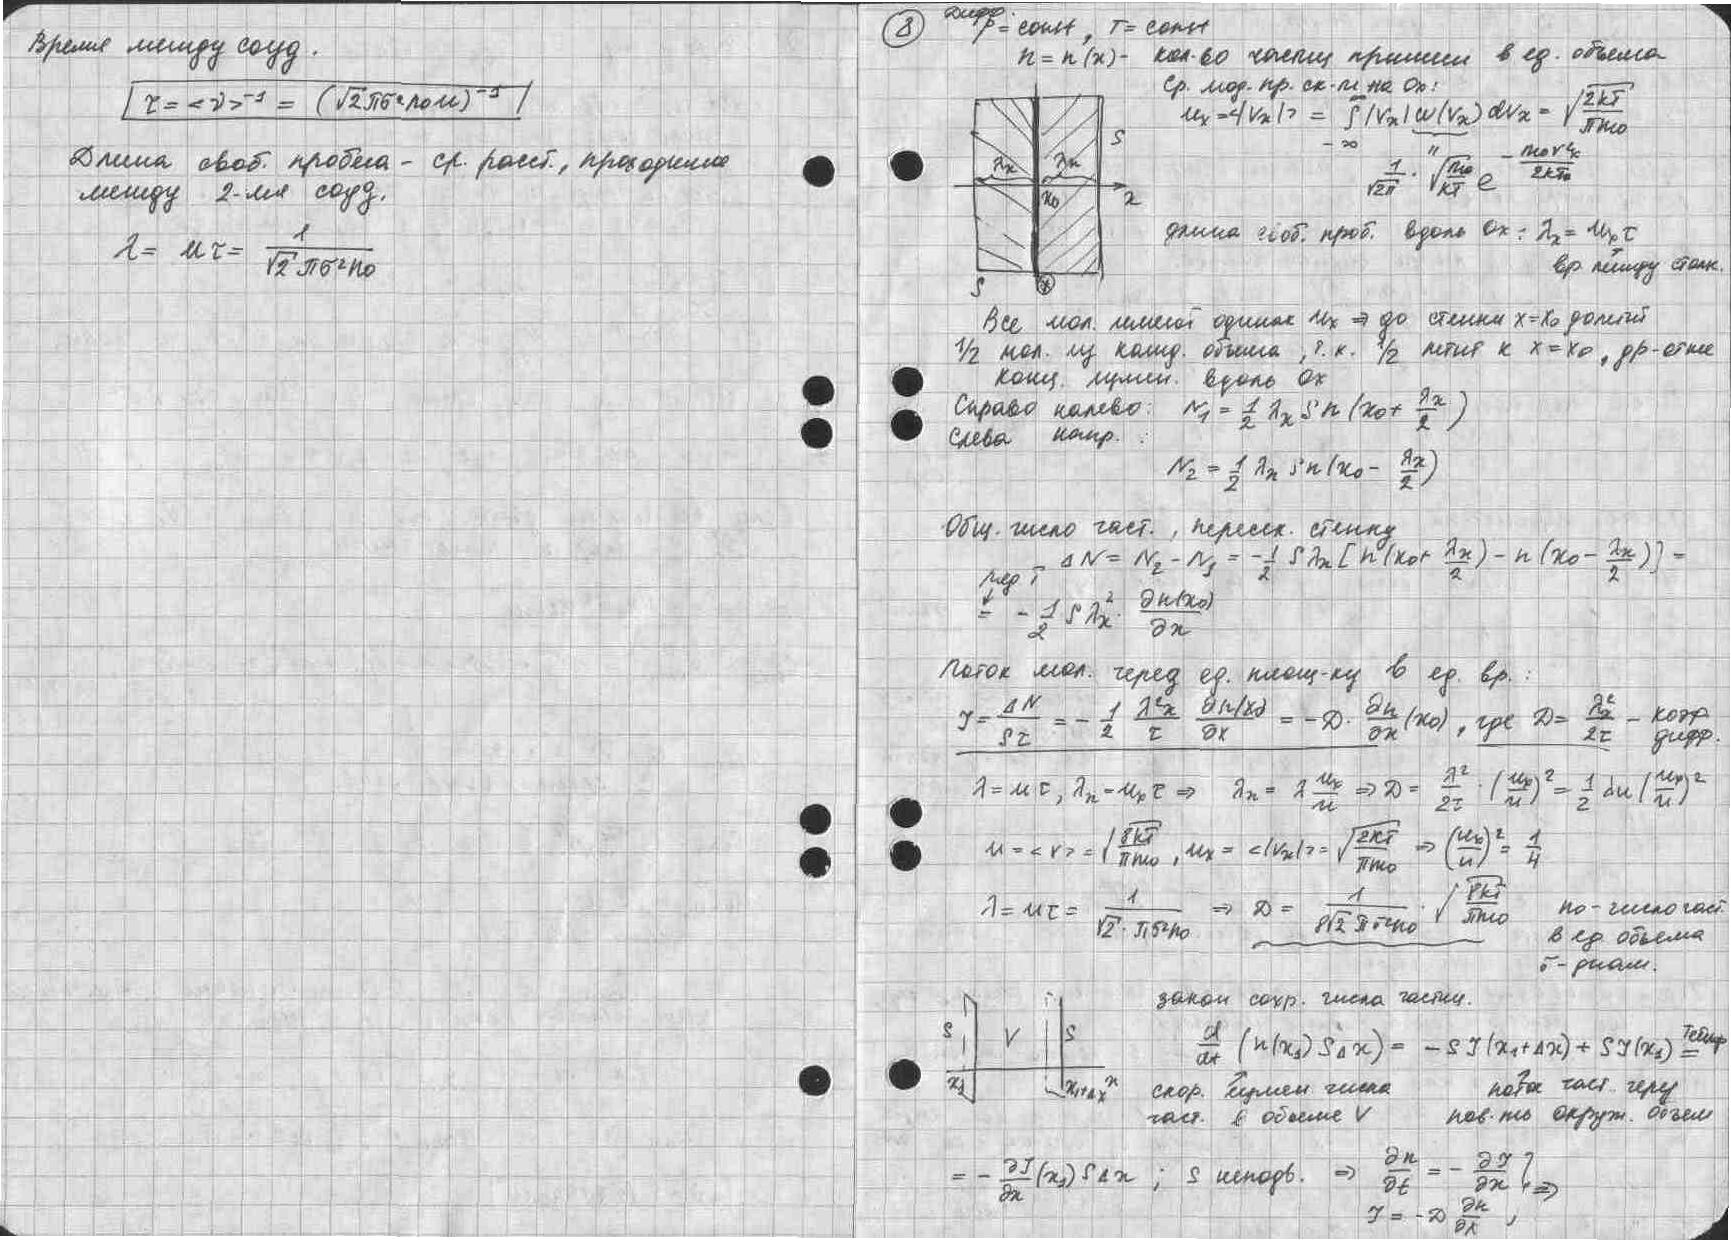 Время между соуд.
τ = <ν>⁻¹ = (√2 πσ² n₀ u)⁻¹
Длина своб. пробега – ср. расст., проходимое
между 2-мя соуд.
λ = uτ = 1/(√2 πσ² n₀)
⑧ Дифф.
p = const, T = const
n = n(x) – кол-во частиц примеси в ед. объема
Ср. мод. пр. ск-ти на Ox:
uₓ = <|vₓ|> = ∫_{-∞}^{∞} |vₓ| ω(vₓ) dvₓ = √(2kT/πm₀)
1/√2π · √(m₀/kT) e^(-m₀v²ₓ/2kT₀)
S
λₓ λₓ
x₀ x
S
длина своб. проб. вдоль Ox: λₓ = uₓ τ
вр. между столк.
Все мол. имеют одинак uₓ ⇒ до стенки x = x₀ долетит
1/2 мол. из кажд. объема, т.к. 1/2 летит к x = x₀, др – от не
конц. измен. вдоль Ox
Справа налево: N₁ = 1/2 λₓ S n(x₀ + λₓ/2)
Слева напр.:
N₂ = 1/2 λₓ S n(x₀ - λₓ/2)
Общ. число част., пересек. стенку
ΔN = N₂ - N₁ = -1/2 S λₓ [n(x₀ + λₓ/2) - n(x₀ - λₓ/2)] =
ряд T
= -1/2 S λₓ² · ∂n(x₀)/∂x
Поток мол. через ед. площ-ку в ед. вр.:
J = ΔN/Sτ = -1/2 λ²ₓ/τ ∂n(x₀)/∂x = -D · ∂n/∂x (x₀), где D = λₓ²/2τ – коэф дифф.
λ = uτ, λₓ = uₓτ ⇒ λₓ = λ uₓ/u ⇒ D = λ²/2τ · (uₓ/u)² = 1/2 λu (uₓ/u)²
u = <v> = √(8kT/πm₀), uₓ = <|vₓ|> = √(2kT/πm₀) ⇒ (uₓ/u)² = 1/4
λ = uτ = 1/(√2 · πσ² n₀) ⇒ D = 1/(8√2 πσ² n₀) · √(8kT/πm₀)
n₀ – число част
в ед. объема
σ – диам.
закон сохр. числа частиц.
S V S
x₁ x₁+Δx x
d/dt (n(x₁) S Δx) = -S J(x₁+Δx) + S J(x₁) =
скор. измен числа
част. в объеме V
поток част. через
пов-ть окруж. объем
= -∂J/∂x (x₁) S Δx ; S неподв. ⇒ ∂n/∂t = -∂J/∂x } ⇒
J = -D ∂n/∂x,